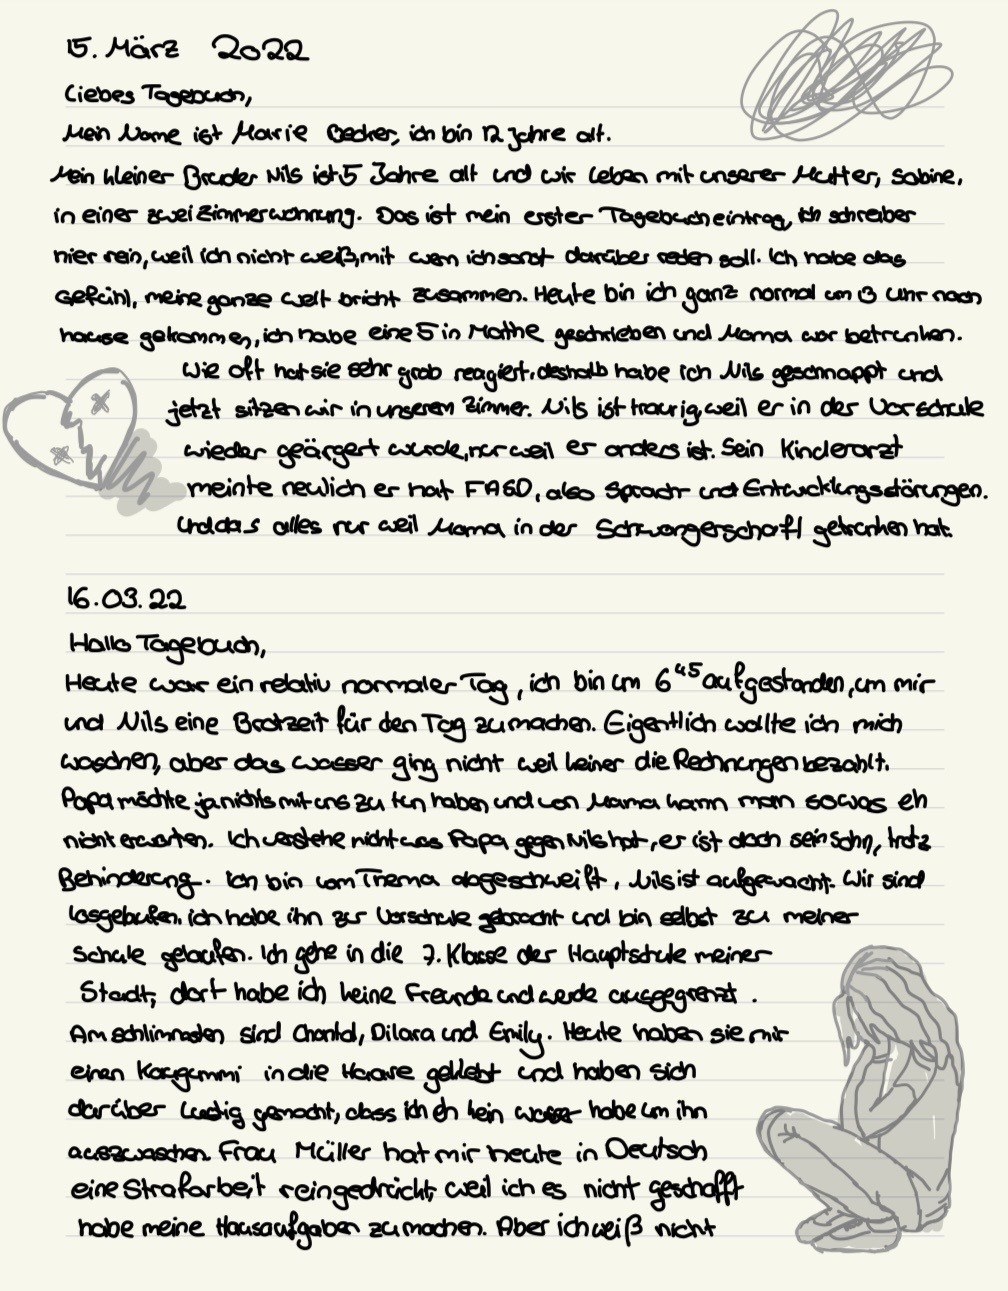 15. März 2022
Liebes Tagebuch,
Mein Name ist Marie Becker, ich bin 12 Jahre alt.
Mein kleiner Bruder Nils ist 5 Jahre alt und wir leben mit unserer Mutter, Sabine,
in einer zwei Zimmerwohnung. Das ist mein erster Tagebucheintrag, Ich schreiber
hier rein, weil ich nicht weiß, mit wem ich sonst darüber reden soll. Ich habe das
Gefühl, meine ganze Welt bricht zusammen. Heute bin ich ganz normal um 13 Uhr nach
hause gekommen, ich habe eine 5 in Mathe geschrieben und Mama war betrunken.
Wie oft hat sie sehr grob reagiert, deshalb habe ich Nils geschnappt und
jetzt sitzen wir in unserem Zimmer. Nils ist traurig, weil er in der Vorschule
wieder geärgert wurde, nur weil er anders ist. Sein Kinderarzt
meinte neulich er hat FASD, also Sprach und Entwicklungsstörungen.
Und das alles nur weil Mama in der Schwangerschaft getrunken hat.
16.03.22
Hallo Tagebuch,
Heute war ein relativ normaler Tag, ich bin um 6⁴⁵ aufgestanden, um mir
und Nils eine Brotzeit für den Tag zu machen. Eigentlich wollte ich mich
waschen, aber das wasser ging nicht weil keiner die Rechnungen bezahlt.
Papa möchte ja nichts mit uns zu tun haben und von Mama kann man sowas eh
nicht erwarten. Ich verstehe nicht was Papa gegen Nils hat, er ist doch sein Sohn, trotz
Behinderung. Ich bin vom Thema abgeschweift, Nils ist aufgewacht. Wir sind
losgelaufen, ich habe ihn zur Vorschule gebracht und bin selbst zu meiner
Schule gelaufen. Ich gehe in die 7. Klasse der Hauptschule meiner
Stadt, dort habe ich keine Freunde und werde ausgegrenzt.
Am schlimmsten sind Chantal, Dilara und Emily. Heute haben sie mir
einen Kaugummi in die Haare geklebt und haben sich
darüber lustig gemacht, dass ich eh kein wasser habe um ihn
auszuwaschen. Frau Müller hat mir heute in Deutsch
eine Strafarbeit reingedrückt, weil ich es nicht geschafft
habe meine Hausaufgaben zu machen. Aber ich weiß nicht